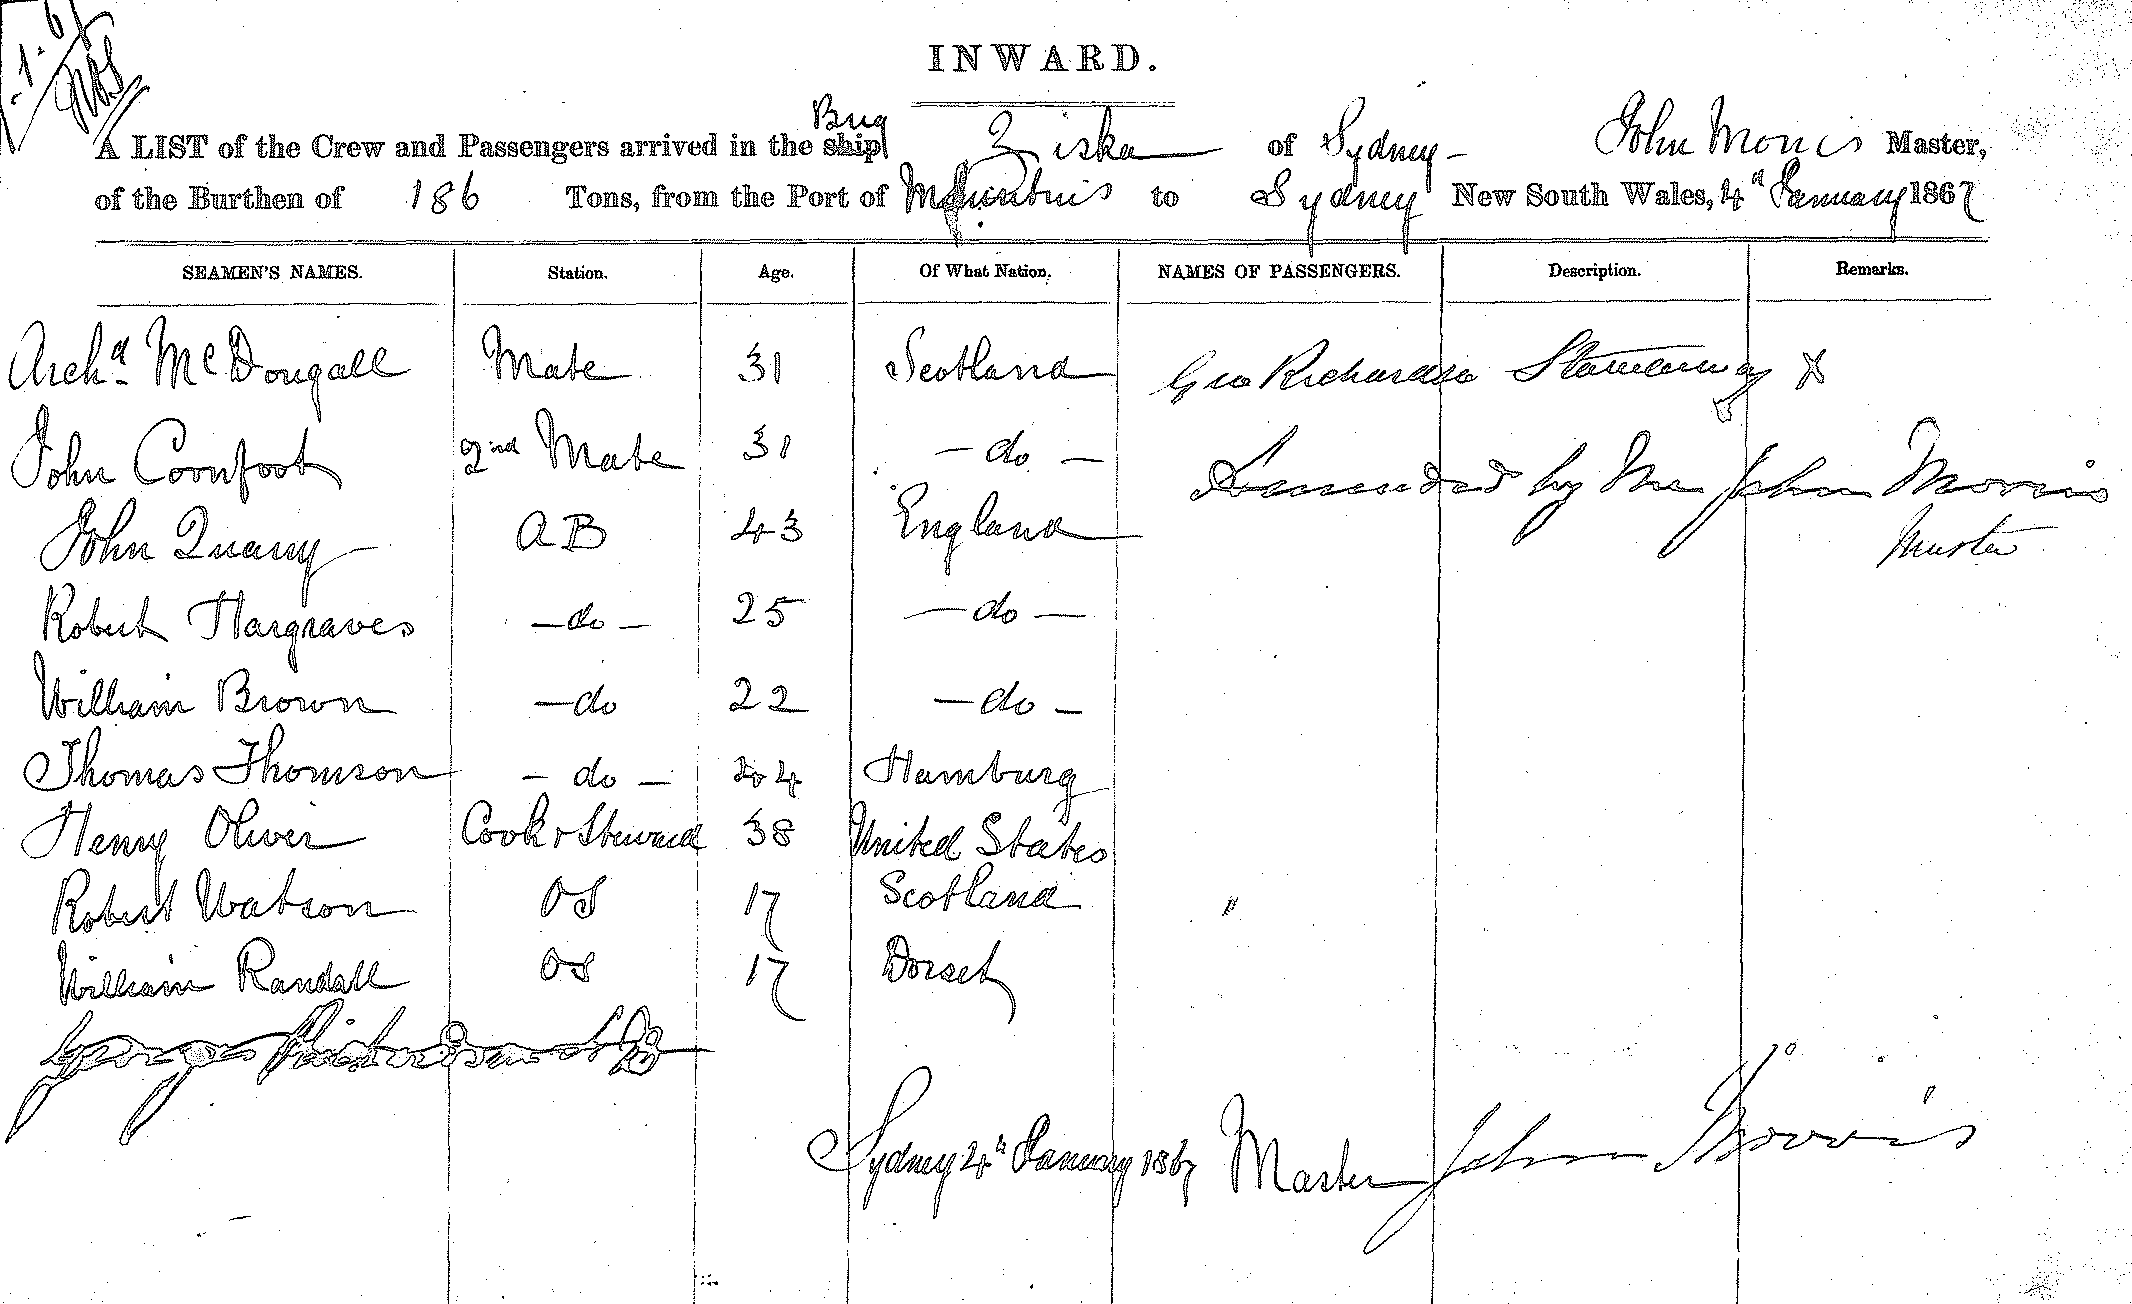 INWARD.
Brig
A LIST of the Crew and Passengers arrived in the ship Ziska of Sydney - John Morris Master,
of the Burthen of 186 Tons, from the Port of Mauritius to Sydney New South Wales, 4th January 1867
SEAMEN'S NAMES. Station. Age. Of What Nation. NAMES OF PASSENGERS. Description. Remarks.
Archd McDougall Mate 31 Scotland Geo Richardson Stowaway X
John Cornfoot 2nd Mate 31 - do - Amended by Me John Morris
Master
John Quarry AB 43 England
Robert Hargraves - do - 25 - do -
William Brown - do 22 - do -
Thomas Thomson - do - 44 Hamburg
Henry Oliver Cook & Steward 38 United States
Robert Watson OS 17 Scotland "
William Randall OS 17 Dorset
George Richardson AB
Sydney 4th January 1867 Master John Morris